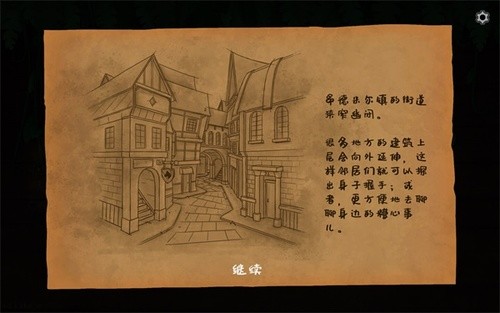 布德乐尔镇的街道
狭窄幽闭。
很多地方的建筑上
层会向外延伸，这
样邻居们就可以探
出身子握手；或
者，更方便地去聊
聊身边的糟心事
儿。
继续